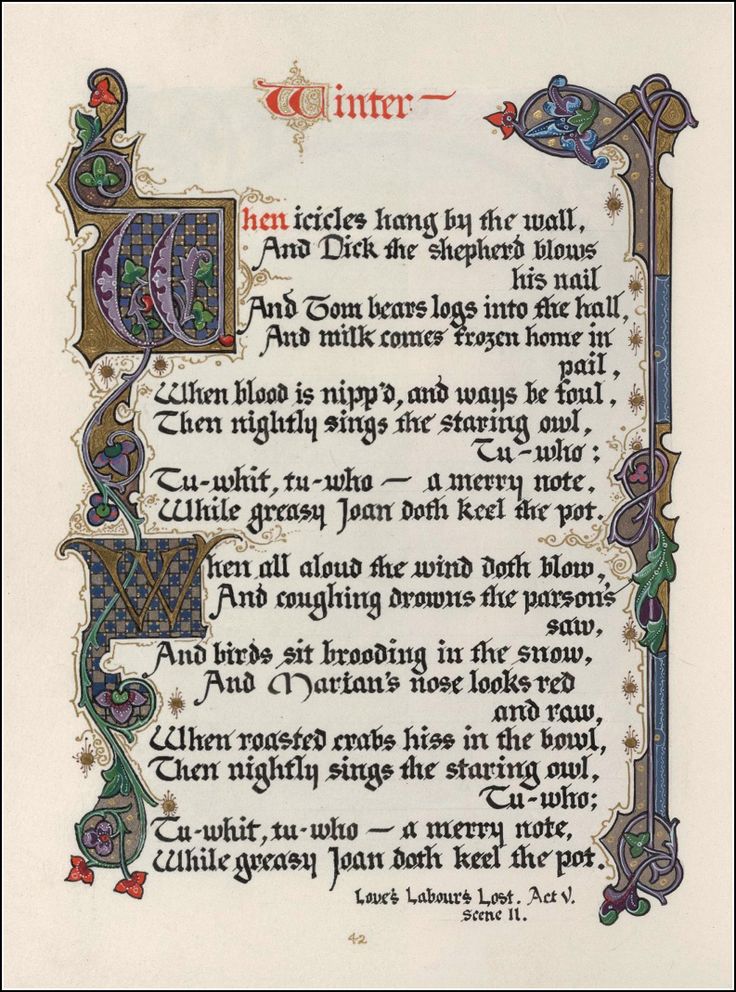 Winter —
When icicles hang by the wall,
And Dick the shepherd blows
his nail
And Tom bears logs into the hall,
And milk comes frozen home in
pail,
When blood is nipp'd, and ways be foul,
Then nightly sings the staring owl,
Tu-who:
Tu-whit, tu-who — a merry note,
While greasy Joan doth keel the pot.
When all aloud the wind doth blow,
And coughing drowns the parson's
saw,
And birds sit brooding in the snow,
And Marian's nose looks red
and raw,
When roasted crabs hiss in the bowl,
Then nightly sings the staring owl,
Tu-who;
Tu-whit, tu-who — a merry note,
While greasy Joan doth keel the pot.
Love's Labour's Lost. Act V.
Scene II.
42